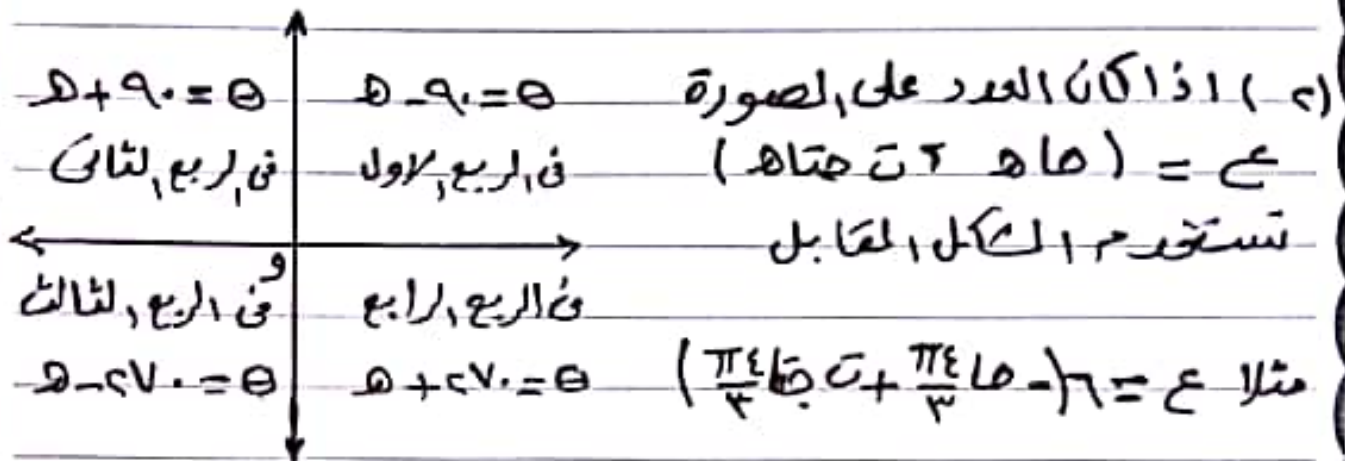 (٢) اذا كان العدد على الصورة
ع = (حا هـ ± ت حتا هـ)
تستخدم الشكل المقابل
مثلا ع = ٦(- حا ٤π/٣ + ت حتا ٤π/٣)
θ = ٩٠ - هـ
فى الربع الاول
θ = ٩٠ + هـ
فى الربع الثانى
و
فى الربع الرابع
θ = ٢٧٠ + هـ
فى الربع الثالث
θ = ٢٧٠ - هـ